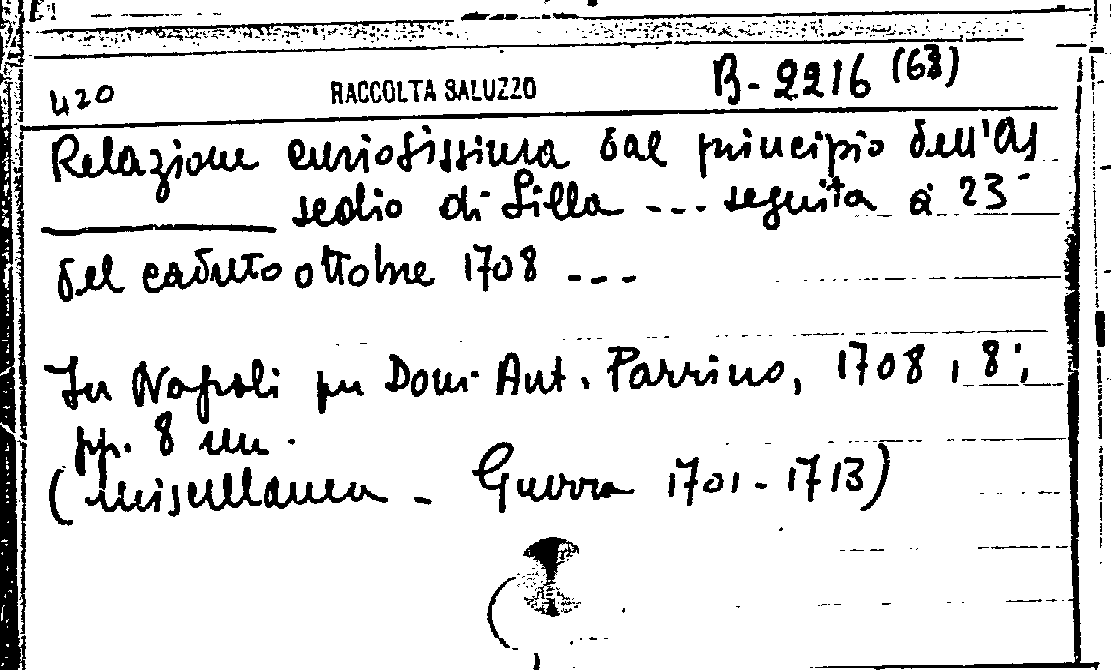 420 RACCOLTA SALUZZO B-2216 (63)
Relazione curiosissima dal principio dell'As
sedio di Lilla --- seguita a' 23
del caduto ottobre 1708 ---
In Napoli per Dom. Ant. Parrino, 1708, 8°,
pp. 8 nn.
(Miscellanea - Guerra 1701-1713)